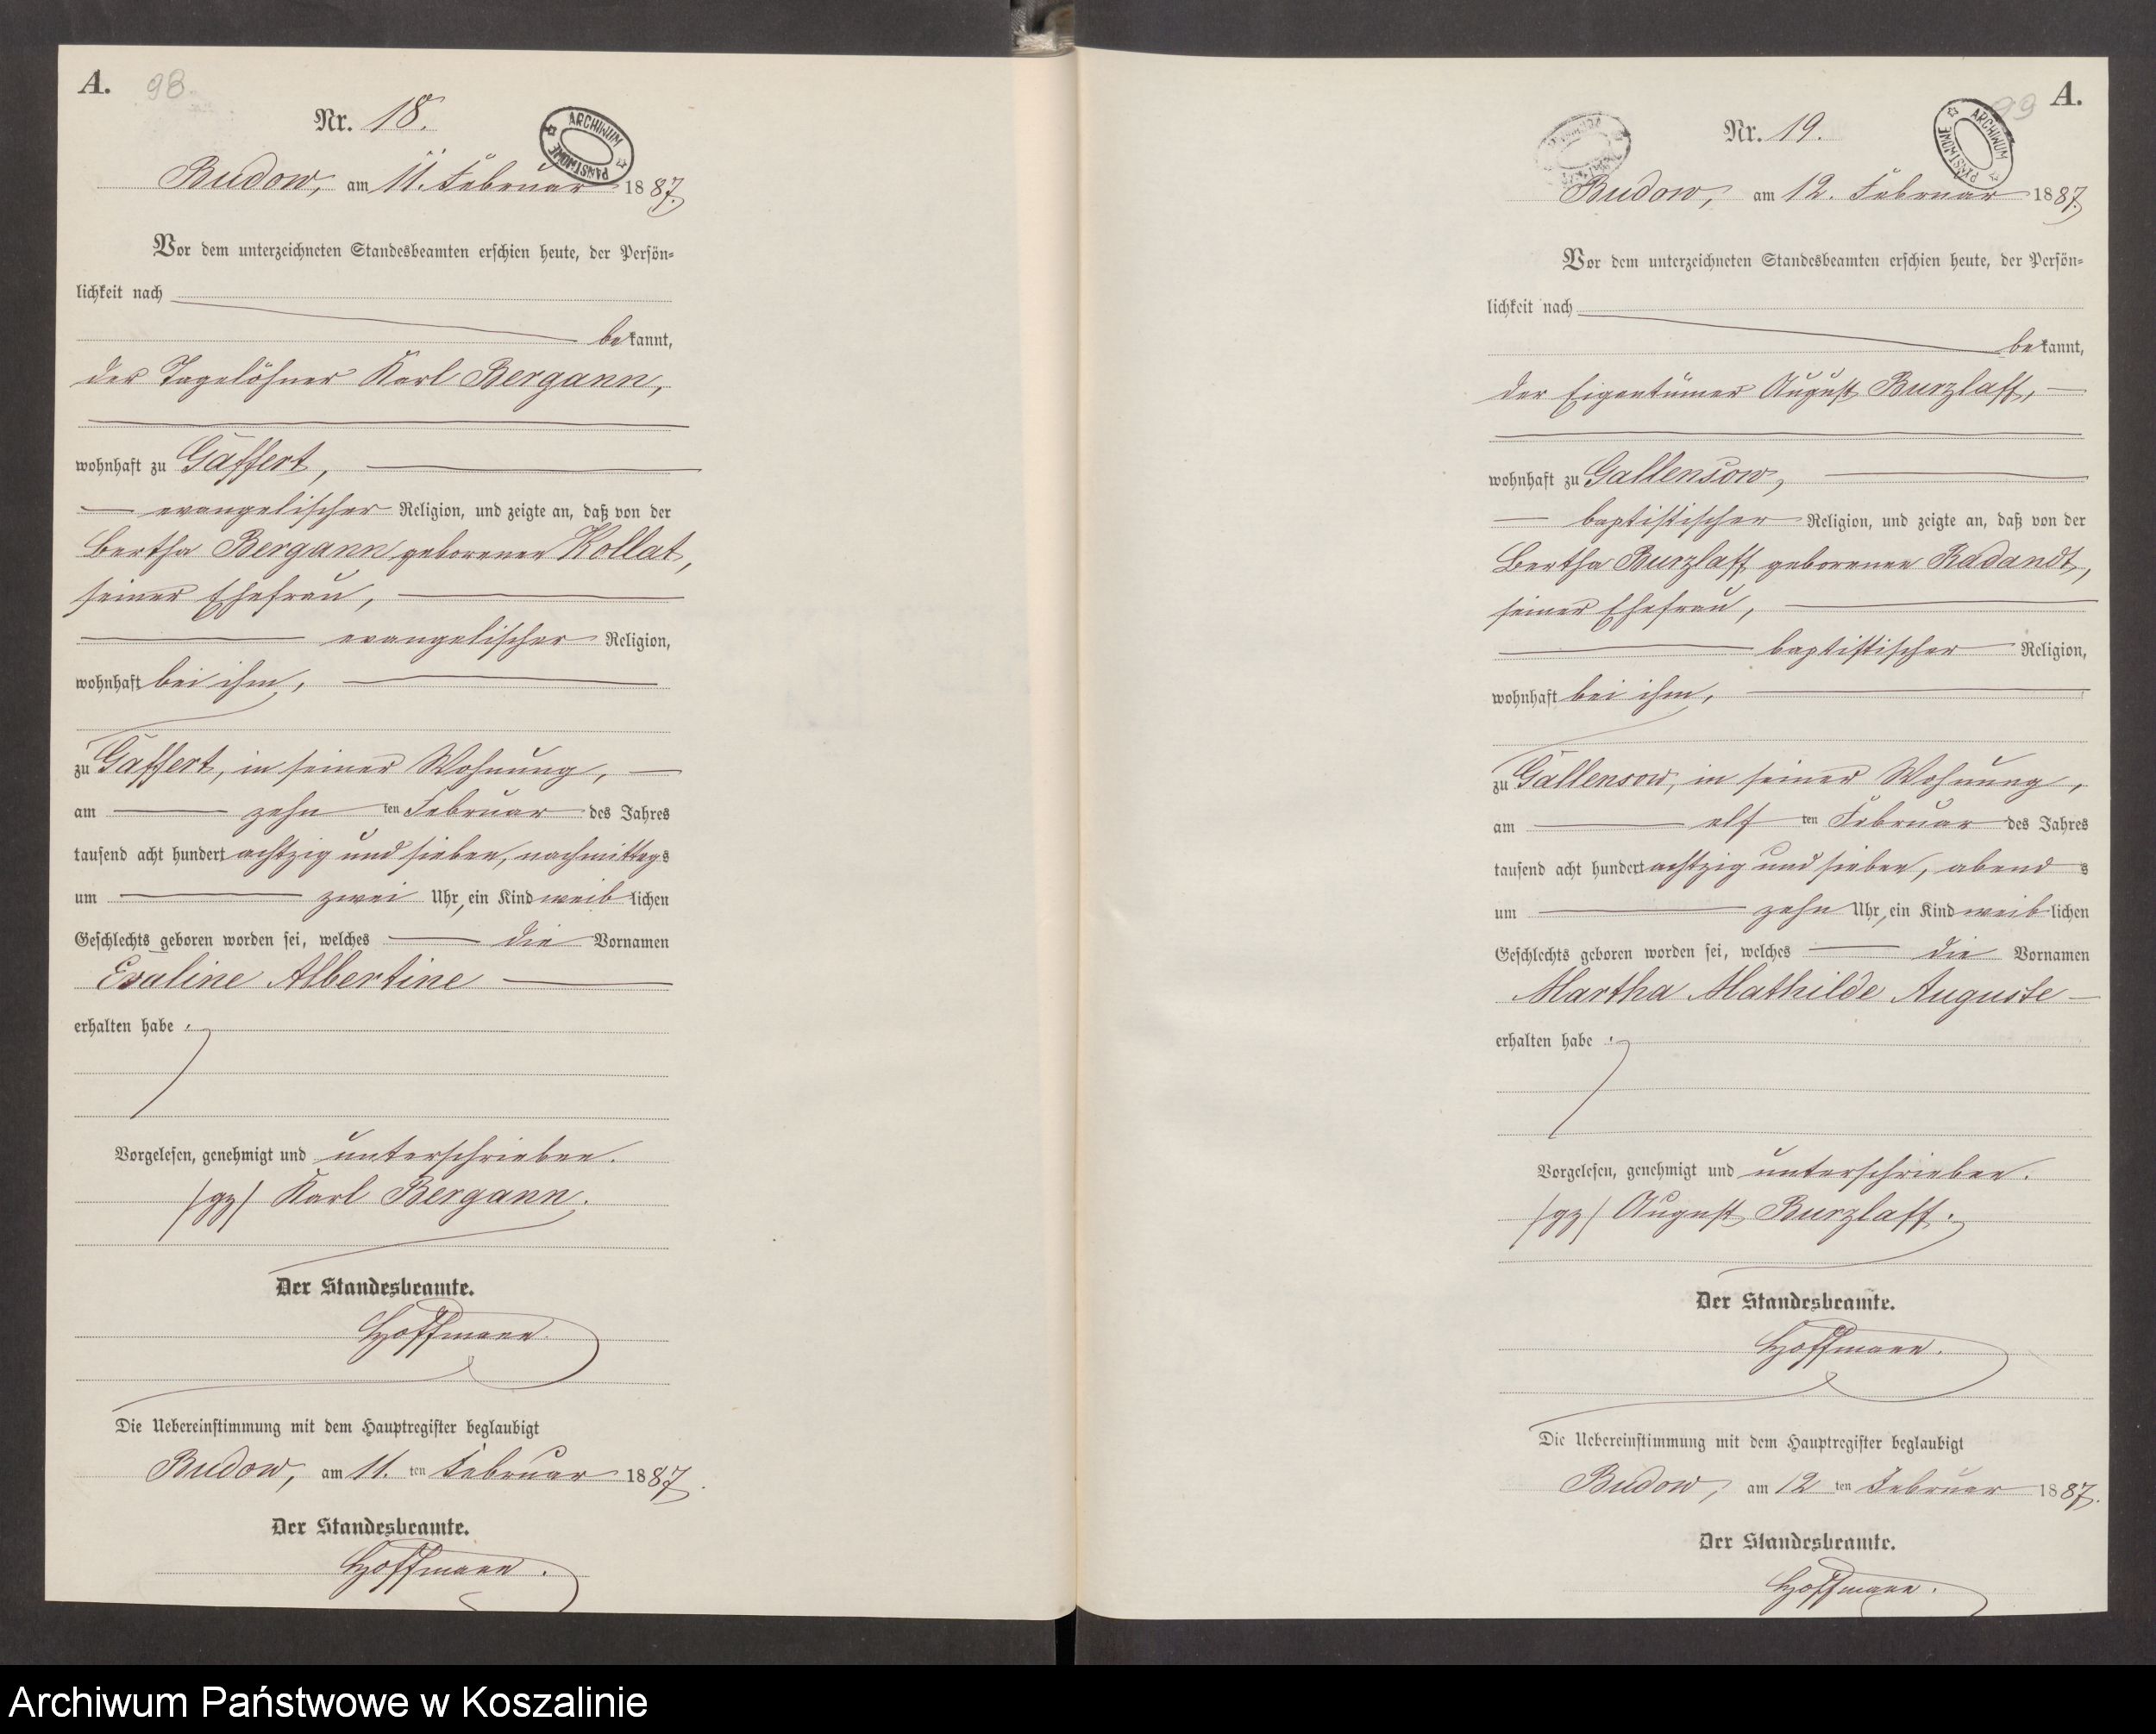 A. 98
Nr. 18.
ARCHIWUM PAŃSTWOWE
Budow, am 11. Februar 1887.
Vor dem unterzeichneten Standesbeamten erschien heute, der Persön=
lichkeit nach
bekannt,
der Tagelöhner Karl Bergann,
wohnhaft zu Gaffert,
evangelischer Religion, und zeigte an, daß von der
Bertha Bergann geborenen Kollat,
seiner Ehefrau,
evangelischer Religion,
wohnhaft bei ihm,
zu Gaffert, in seiner Wohnung,
am zehn ten Februar des Jahres
tausend acht hundert achtzig und sieben, nachmittags
um zwei Uhr, ein Kind weiblichen
Geschlechts geboren worden sei, welches die Vornamen
Evaline Albertine
erhalten habe.
Vorgelesen, genehmigt und unterschrieben.
/gz/ Karl Bergann.
Der Standesbeamte.
Hoffmann.
Die Uebereinstimmung mit dem Hauptregister beglaubigt
Budow, am 11. ten Februar 1887.
Der Standesbeamte.
Hoffmann.
99 A.
Nr. 19.
ARCHIWUM PAŃSTWOWE
Budow, am 12. Februar 1887.
Vor dem unterzeichneten Standesbeamten erschien heute, der Persön=
lichkeit nach
bekannt,
der Eigentümer August Burzlaff,
wohnhaft zu Gallensow,
baptistischer Religion, und zeigte an, daß von der
Bertha Burzlaff geborenen Radandt,
seiner Ehefrau,
baptistischer Religion,
wohnhaft bei ihm,
zu Gallensow, in seiner Wohnung,
am elf ten Februar des Jahres
tausend acht hundert achtzig und sieben, abends
um zehn Uhr, ein Kind weiblichen
Geschlechts geboren worden sei, welches die Vornamen
Martha Mathilde Auguste
erhalten habe.
Vorgelesen, genehmigt und unterschrieben.
/gz/ August Burzlaff.
Der Standesbeamte.
Hoffmann.
Die Uebereinstimmung mit dem Hauptregister beglaubigt
Budow, am 12 ten Februar 1887.
Der Standesbeamte.
Hoffmann.
Archiwum Państwowe w Koszalinie